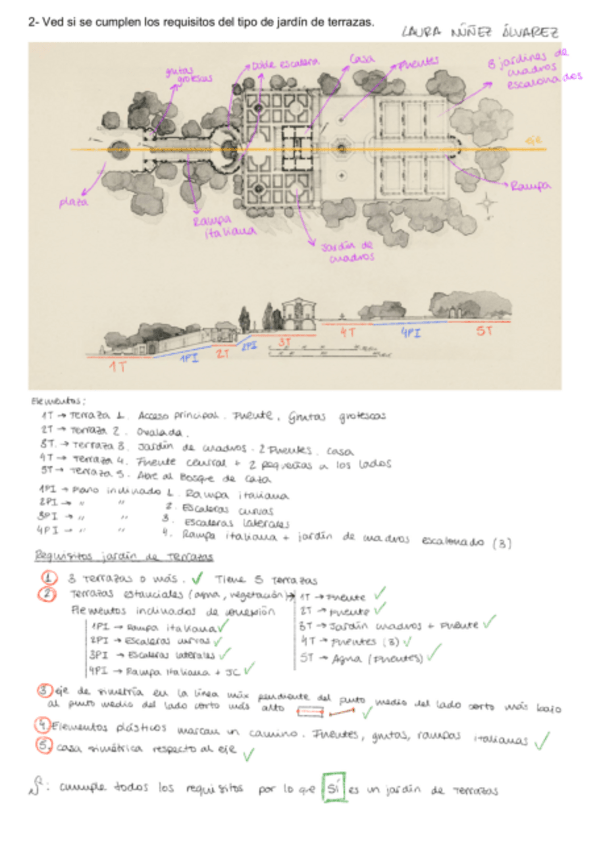 2- Ved si se cumplen los requisitos del tipo de jardín de terrazas.
LAURA NÚÑEZ ÁLVAREZ
grutas grotescas
Doble escalera
Casa
Fuentes
8 jardines de cuadros escalonados
eje
plaza
Rampa italiana
Jardín de cuadros
Rampa
1T 1PI 2T 2PI 3T 4T 4PI 5T
Elementos:
1T → Terraza 1. Acceso principal. Fuente, Grutas grotescas
2T → Terraza 2. Ovalada.
3T → Terraza 3. Jardín de cuadros. 2 Fuentes. Casa
4T → Terraza 4. Fuente central + 2 pequeñas a los lados
5T → Terraza 5. Abre al Bosque de Caza
1PI → Plano inclinado 1. Rampa italiana
2PI → " " 2. Escaleras curvas
3PI → " " 3. Escaleras laterales
4PI → " " 4. Rampa italiana + jardín de cuadros escalonado (3)
Requisitos jardín de Terrazas
1 3 terrazas o más. ✓ Tiene 5 terrazas
2 Terrazas estanciales (agua, vegetación) → 1T → Fuente ✓
Elementos inclinados de conexión 2T → Fuente ✓
1PI → Rampa italiana ✓ 3T → Jardín cuadros + Fuente ✓
2PI → Escaleras curvas ✓ 4T → Fuentes (3) ✓
3PI → Escaleras laterales ✓ 5T → Agua (Fuentes) ✓
4PI → Rampa italiana + JC ✓
3 eje de simetría en la línea máx pendiente del punto medio del lado corto más bajo
al punto medio del lado corto más alto ✓
4 Elementos plásticos marcan un camino. Fuentes, grutas, rampas italianas ✓
5. casa simétrica respecto al eje ✓
cumple todos los requisitos por lo que SÍ es un jardín de terrazas